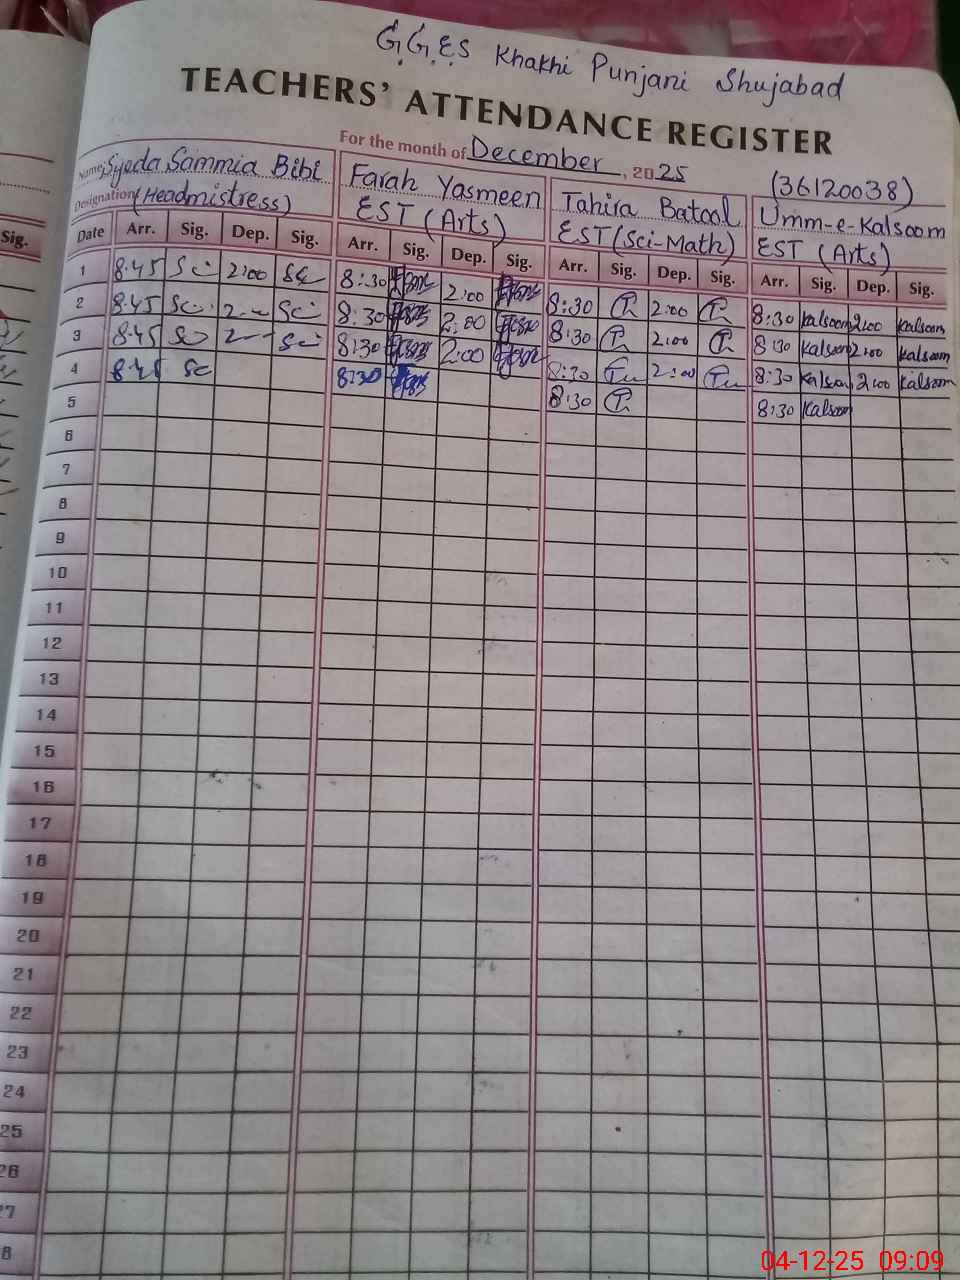 G.G.E.S Khakhi Punjani Shujabad
TEACHERS' ATTENDANCE REGISTER
For the month of December, 2025
(36120038)
Name Syeda Sammia Bibi Farah Yasmeen Tahira Batool Umm-e-Kalsoom
Designation (Headmistress) EST (Arts) EST (Sci-Math) EST (Arts)
Sig. Date Arr. Sig. Dep. Sig. Arr. Sig. Dep. Sig. Arr. Sig. Dep. Sig. Arr. Sig. Dep. Sig.
1 8:45 2:00 8:30 2:00 8:30 2:00 8:30 Kalsoom 2:00 Kalsoom
2 8:45 8:30 2:00 8:30 2:00 8:30 Kalsoom 2:00 Kalsoom
3 8:45 8:30 2:00 8:30 2:00 8:30 Kalsoom 2:00 Kalsoom
4 8:45 8:30 8:30 8:30 Kalsoom
5
6
7
8
9
10
11
12
13
14
15
16
17
18
19
20
21
22
23
24
25
26
27
8
04-12-25 09:09